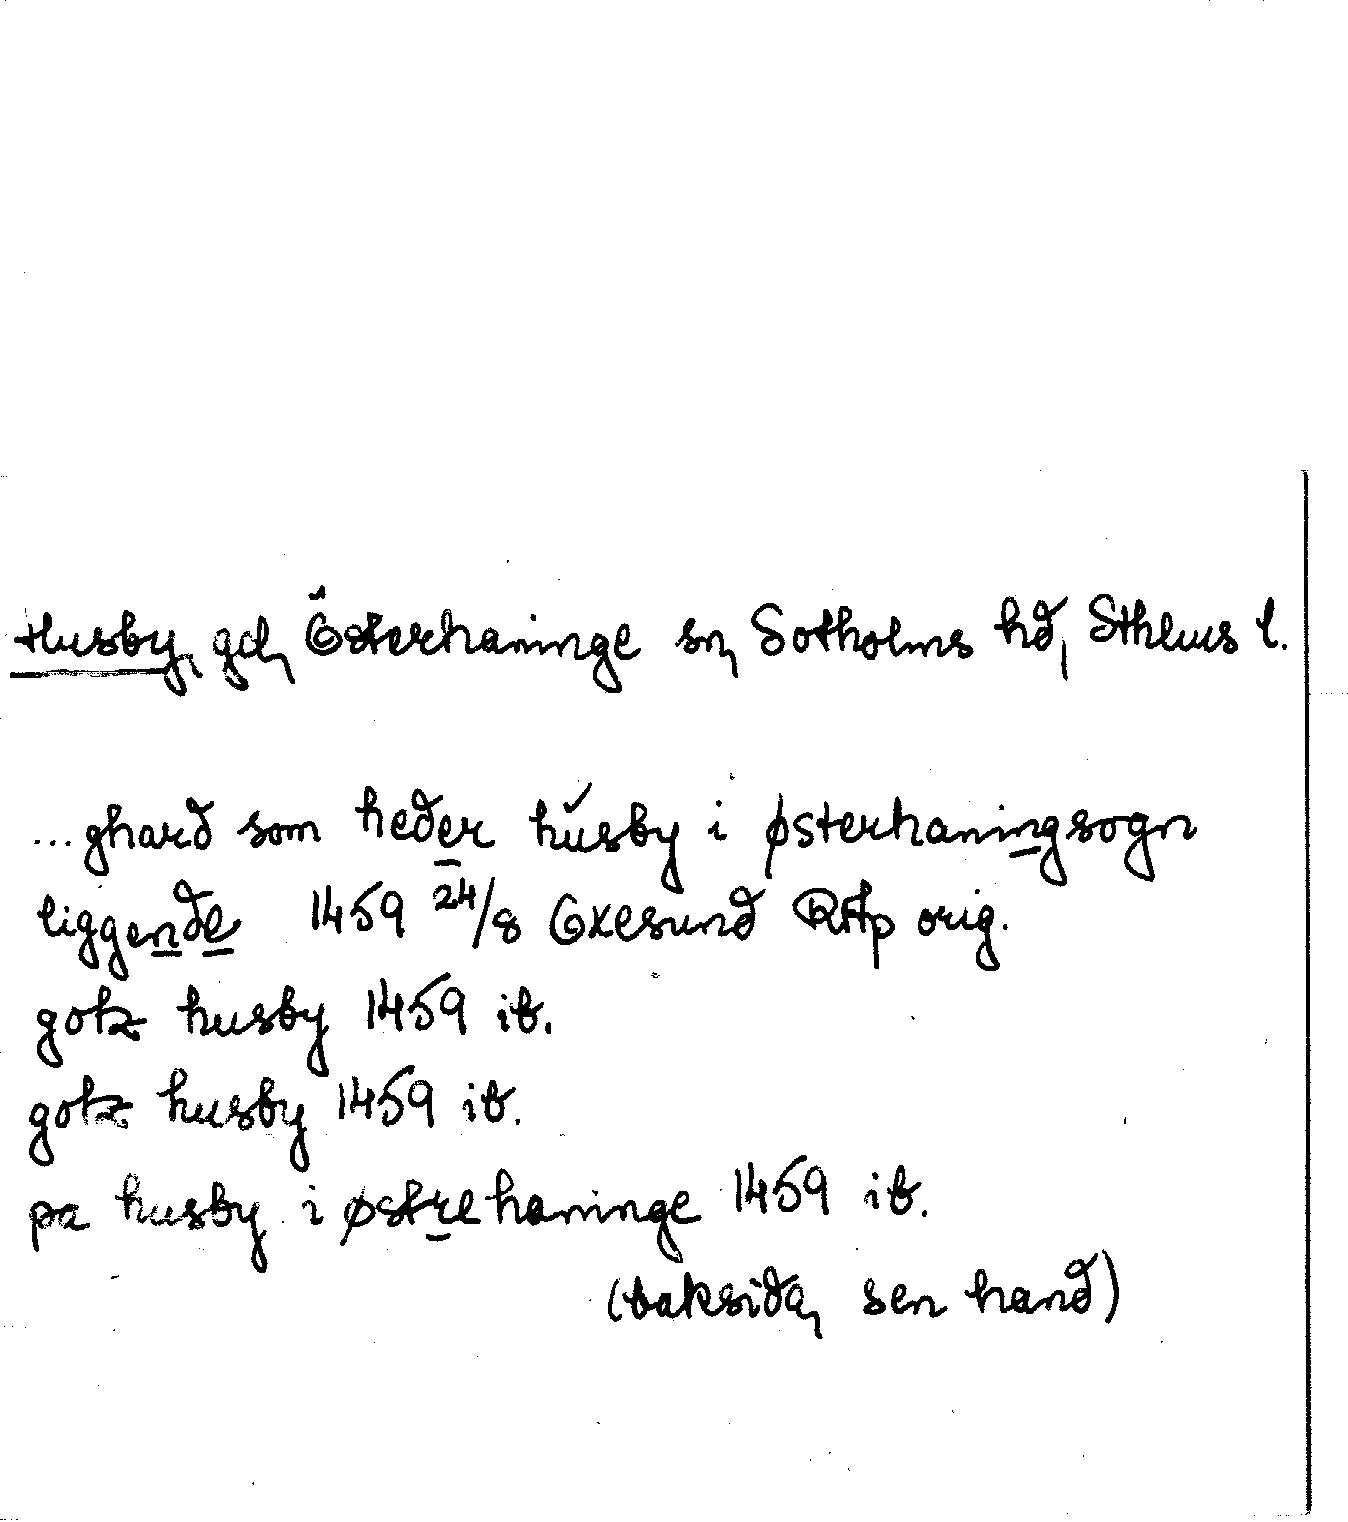 Husby, gd, Österhaninge sn, Sotholms hd, Sthlms l.
...ghard som heder húsby i østerhaningsogn
liggende 1459 24/8 Oxesund RAp orig.
gotz husby 1459 ib.
gotz husby 1459 ib.
pa husby i østrehaninge 1459 ib.
(baksida, sen hand)